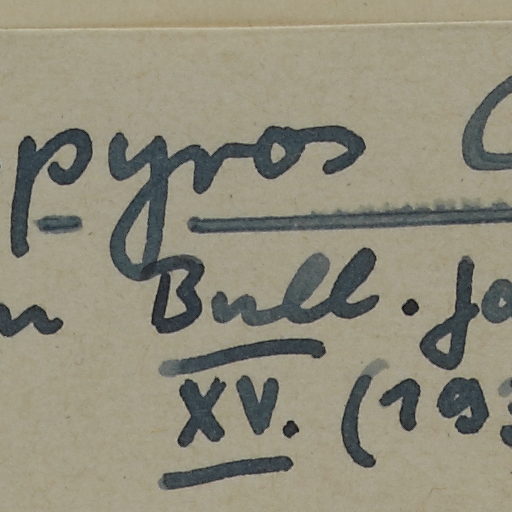 pyros C
n Bull. Jo
XV. (193